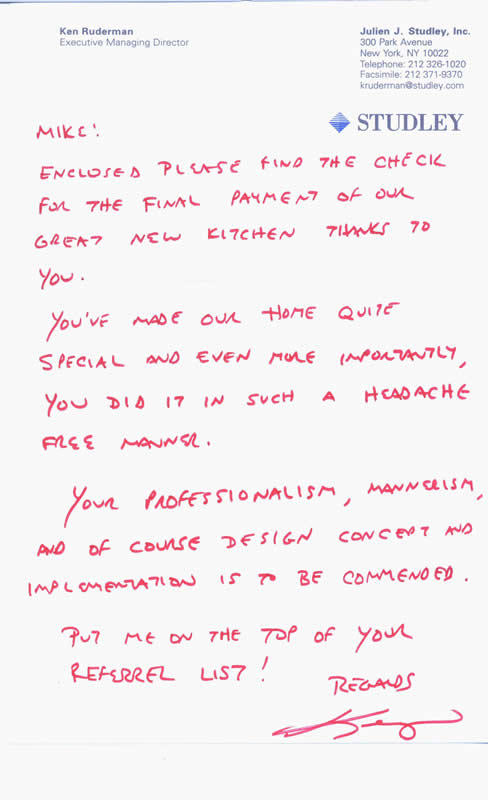 Ken Ruderman
Executive Managing Director
Julien J. Studley, Inc.
300 Park Avenue
New York, NY 10022
Telephone: 212 326-1020
Facsimile: 212 371-9370
kruderman@studley.com
STUDLEY
MIKE:
ENCLOSED PLEASE FIND THE CHECK
FOR THE FINAL PAYMENT OF OUR
GREAT NEW KITCHEN THANKS TO
YOU.
YOU'VE MADE OUR HOME QUITE
SPECIAL AND EVEN MORE IMPORTANTLY,
YOU DID IT IN SUCH A HEADACHE
FREE MANNER.
YOUR PROFESSIONALISM, MANNERISM,
AND OF COURSE DESIGN CONCEPT AND
IMPLEMENTATION IS TO BE COMMENDED.
PUT ME ON THE TOP OF YOUR
REFERREL LIST!
REGARDS